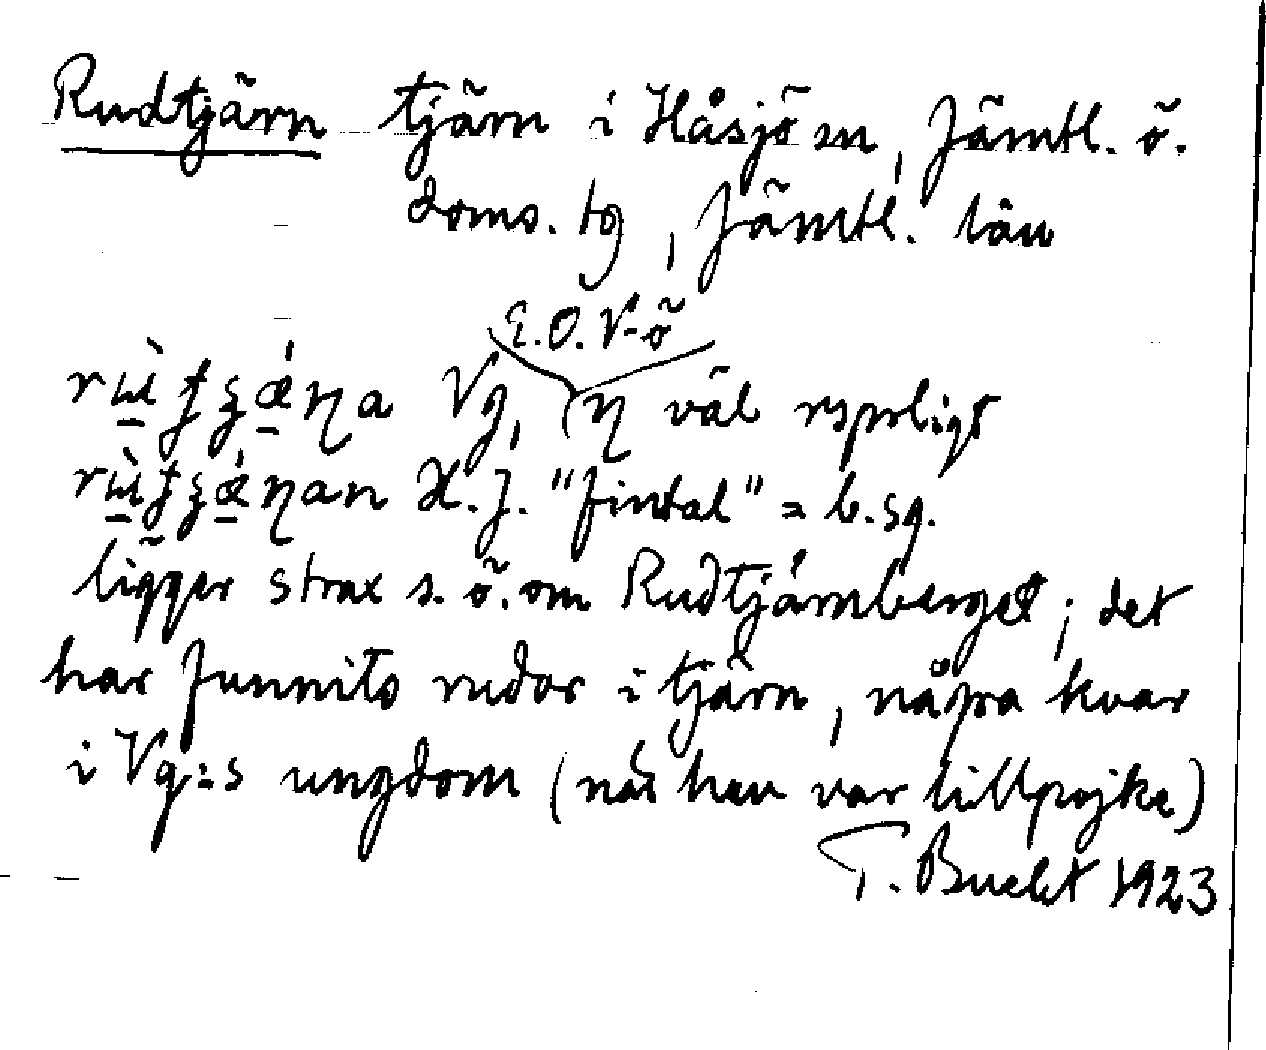 Rudtjärn tjärn i Håsjö sn, Jämtl. ö.
doms. tg, Jämtl. län
E.O.V-ö
Vg, (η väl rsprligt
H.J. "fintal" = b.sg.
ligger strax s.ö. om Rudtjärnberget; det
har funnits rudor i tjärn, några kvar
i Vg:s ungdom (när han var lillpojke)
T. Bucht 1923